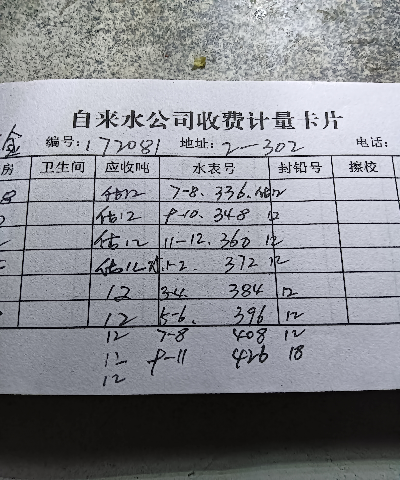 自来水公司收费计量卡片
金 编号:172081 地址:2-302 电话:
房 卫生间 应收吨 水表号 封铅号 擦校
估12 7-8. 336. 估12
估12 9-10. 348 12
估12 11-12. 360 12
估12 1-2 372 12
12 3-4. 384 12
12 5-6. 396 12
12 7-8 408 12
12 9-11 426 18
12